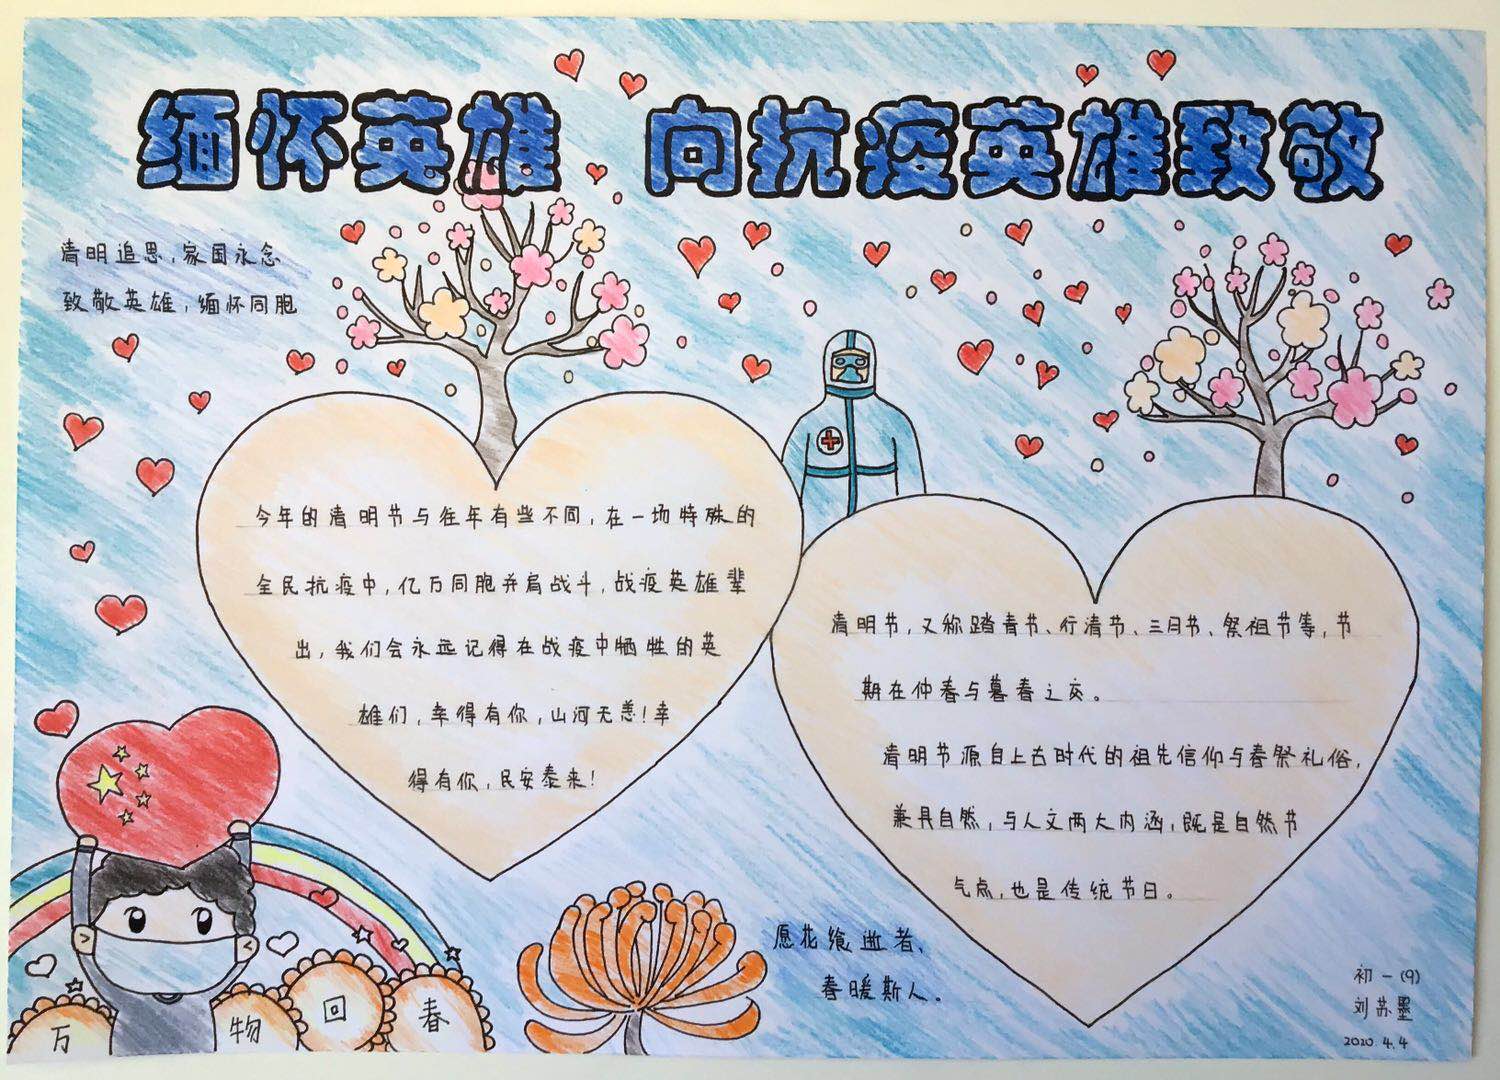 缅怀英雄 向抗疫英雄致敬
清明追思,家国永念
致敬英雄,缅怀同胞
今年的清明节与往年有些不同,在一场特殊的
全民抗疫中,亿万同胞并肩战斗,战疫英雄辈
出,我们会永远记得在战疫中牺牲的英
雄们,幸得有你,山河无恙!幸
得有你,民安泰来!
清明节,又称踏青节、行清节、三月节、祭祖节等,节
期在仲春与暮春之交。
清明节源自上古时代的祖先信仰与春祭礼俗,
兼具自然,与人文两大内涵,既是自然节
气点,也是传统节日。
愿花飨逝者、
春暖斯人。
万物回春
初一(9)
刘苏墨
2020.4.4